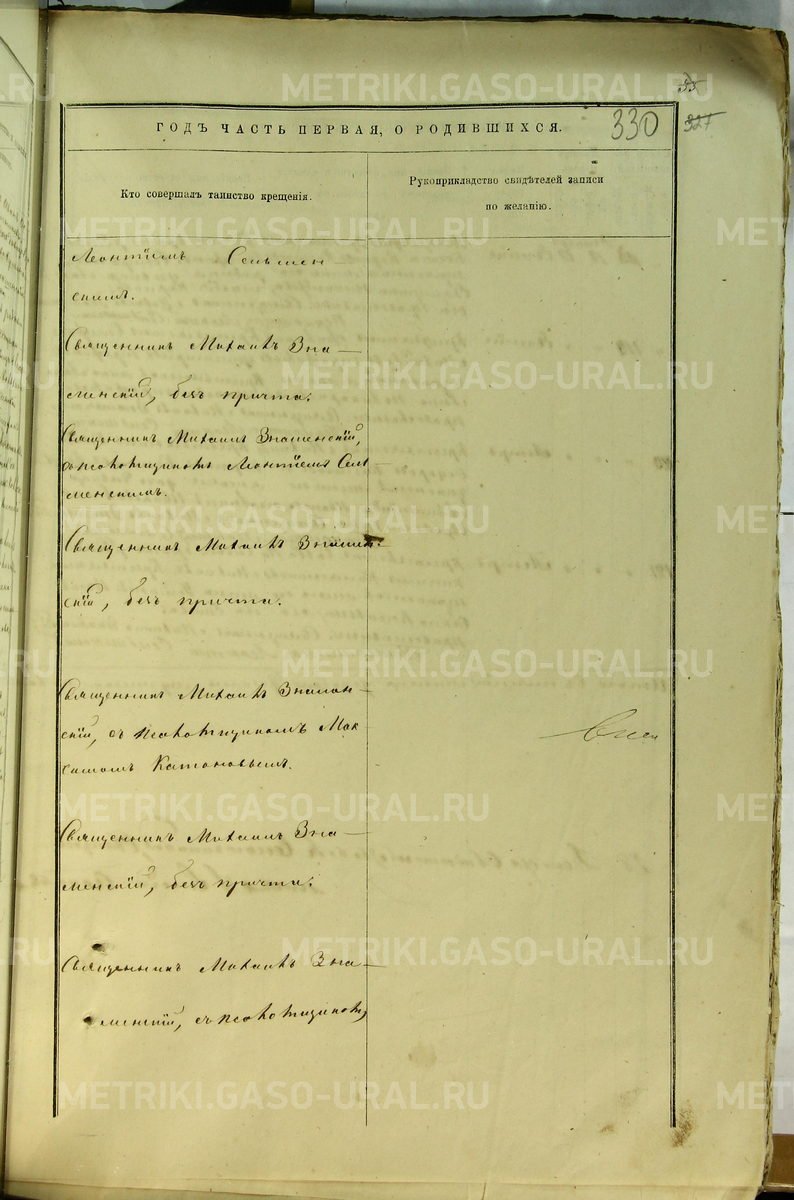 55
ГОДЪ ЧАСТЬ ПЕРВАЯ, О РОДИВШИХСЯ.
330
327
Кто совершалъ таинство крещенія.
Рукоприкладство свидѣтелей записи
по желанію.
Леонтіемъ Сельмен
скимъ.
Священникъ Михаилъ Зна
менскій, безъ причта.
Священникъ Михаилъ Знаменскій,
съ псаломщикомъ Леонтіемъ Сель
менскимъ.
Священникъ Михаилъ Знамен
скій, безъ причта.
Священникъ Михаилъ Знамен
скій, съ псаломщикомъ Мак
симомъ Катоновымъ.
Священникъ Михаилъ Зна
менскій, безъ причта.
Священникъ Михаилъ Зна
менскій, съ псаломщикомъ
METRIKI.GASO-URAL.RU